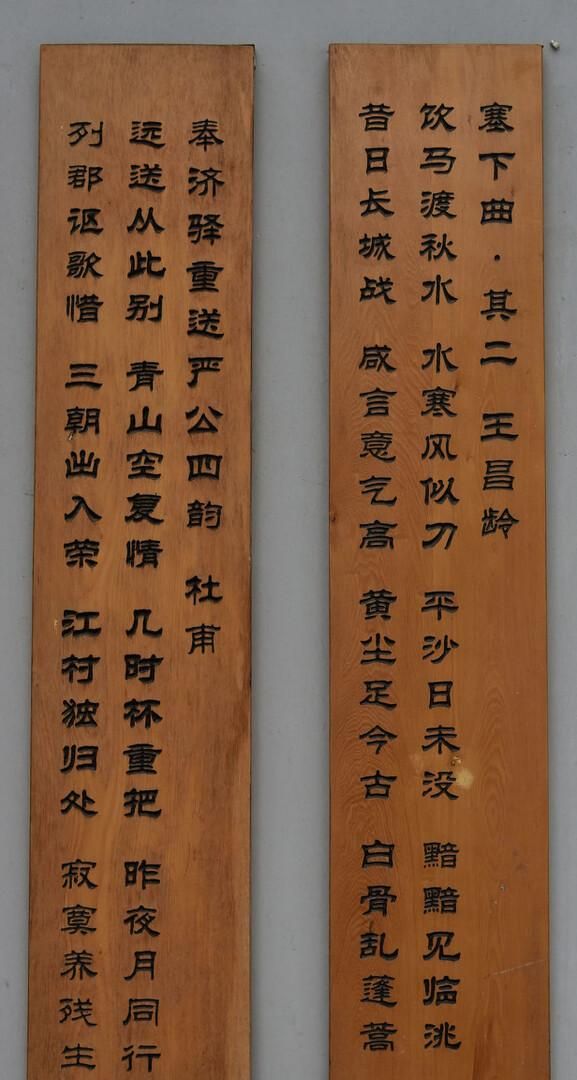 塞下曲·其二 王昌龄
饮马渡秋水 水寒风似刀 平沙日未没 黯黯见临洮
昔日长城战 咸言意气高 黄尘足今古 白骨乱蓬蒿
奉济驿重送严公四韵 杜甫
远送从此别 青山空复情 几时杯重把 昨夜月同行
列郡讴歌惜 三朝出入荣 江村独归处 寂寞养残生